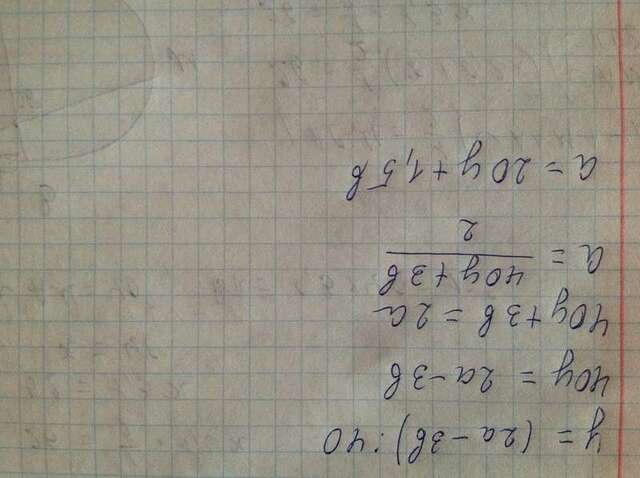 y = (2a - 3в) : 40
40y = 2a - 3в
40y + 3в = 2a
a = \frac{40y + 3в}{2}
a = 20y + 1,5в